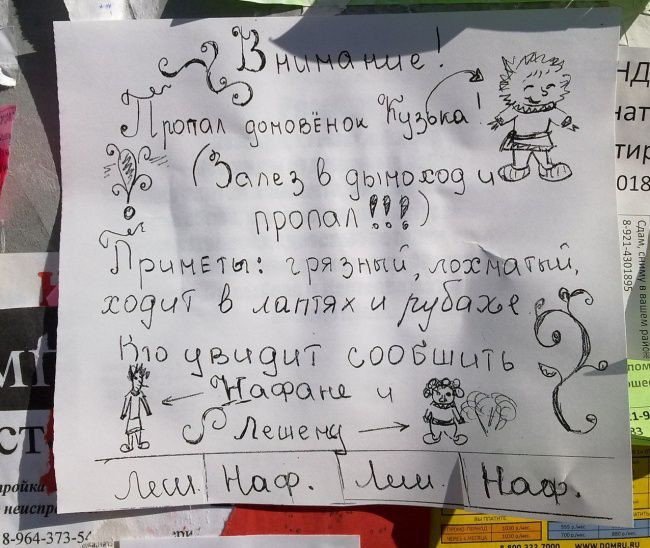 Внимание!
Пропал домовёнок Кузька!
(Залез в дымоход и
пропал!!!)
Приметы: грязный, лохматый,
ходит в лаптях и рубахе
Кто увидит сообшить
Нафане и
Лешему
Леш. Наф. Леш. Наф.
018
Сдам, сниму в вашем районе
8-921-4301895
8-964-373-54
8 800 333 7000 WWW.DOMRU.RU